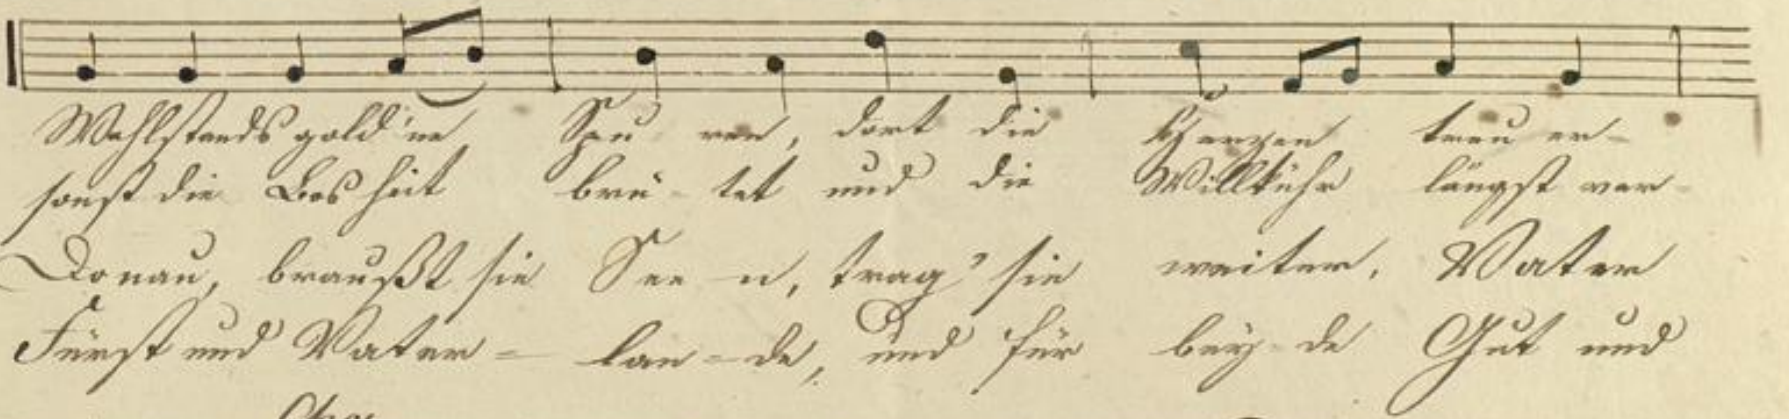 Wohlstands gold'ne Spu ren, dort die Herzen treu er-
sonst die Bos heit brü - tet und die Willkühr längst ver-
Donau, braußt sie See n, trag' sie weiter, Vater
Fürst und Vater = lan = de, und für bey - de Gut und